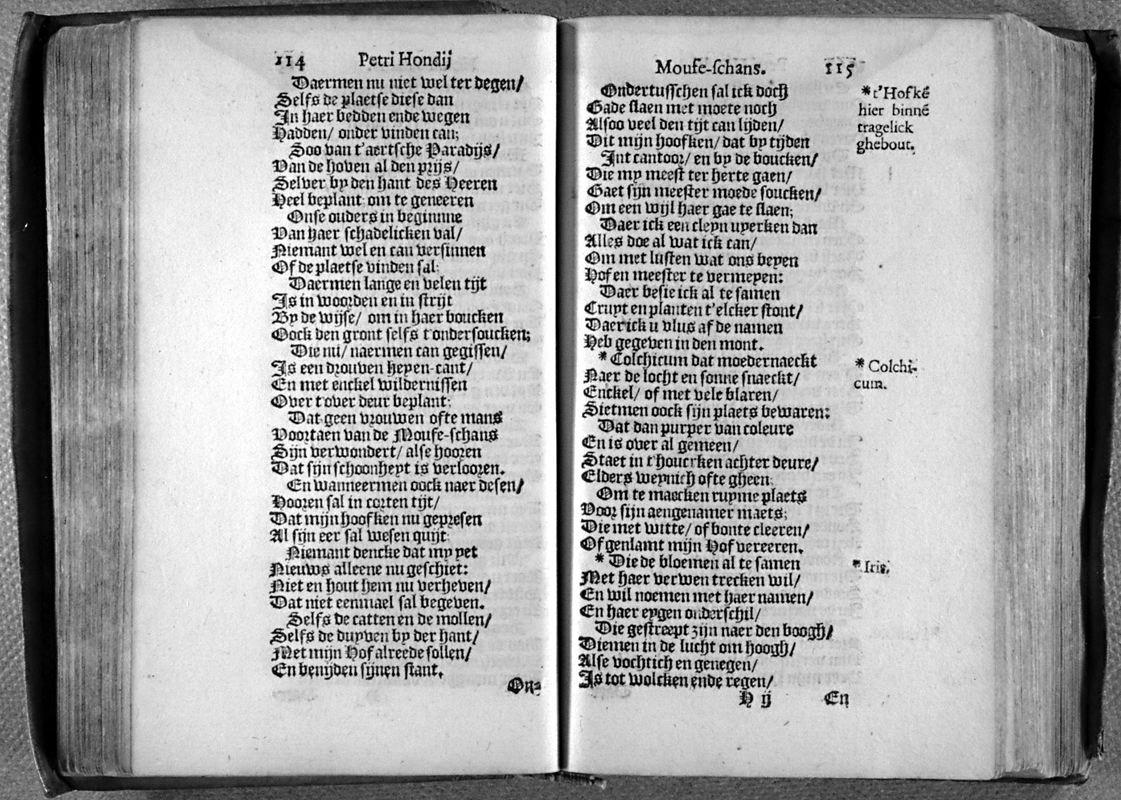 114 Petri Hondij
Daermen nu niet wel ter degen/
Selfs de plaetse diese dan
In haer bedden ende wegen
Hadden/ onder vinden can;
Soo van t'aertsche Paradijs/
Van de hoven al den prijs/
Selver by den hant des Heeren
Heel beplant om te geneeren
Onse ouders in beginnne
Van haer schadelicken val/
Niemant wel en can versinnen
Of de plaetse vinden sal:
Daermen lange en velen tijt
Is in woorden en in strijt
By de wijse/ om in haer boucken
Oock den gront selfs t'ondersoucken;
Die nu/ naermen can gegissen/
Is een drouven heyen-cant/
En met enckel wildernissen
Over t'over deur beplant:
Dat geen vrouwen ofte mans
Voortaen van de Moufe-schans
Sijn verwondert/ alse hooren
Dat sijn schoonheyt is verlooren.
En wanneermen oock naer desen/
Hooren sal in corten tijt/
Dat mijn hoofken nu gepresen
Al sijn eer sal wesen quijt:
Niemant dencke dat my yet
Nieuws alleene nu geschiet:
Niet en hout hem nu verheven/
Dat niet eenmael sal begeven.
Selfs de catten en de mollen/
Selfs de duyven by der hant/
Met mijn Hof alreede sollen/
En benijden sijnen stant.
On-
Moufe-schans. 115
Ondertusschen sal ick doch
Gade slaen met moete noch
Alsoo veel den tijt can lijden/
Dit mijn hoofken/ dat by tijden
Int cantoor/ en by de boucken/
Die my meest ter herte gaen/
Gaet sijn meester moede soucken/
Om een wijl haer gae te slaen;
Daer ick een cleyn uyerken dan
Alles doe al wat ick can/
Om met lusten wat ons beyen
Hof en meester te vermeyen:
Daer besie ick al te samen
Cruyt en planten t'elcker stont/
Daer ick u vlus af de namen
Heb gegeven in den mont.
* Colchicum dat moedernaeckt
Naer de locht en sonne snaeckt/
Enckel/ of met vele blaren/
Sietmen oock sijn plaets bewaren:
Dat dan purper van coleure
En is over al gemeen/
Staet in t'houcrken achter deure/
Elders weynich ofte gheen:
Om te maecken ruyme plaets
Voor sijn aengenamer maets;
Die met witte/ of bonte cleeren/
Of genlamt mijn Hof vereeren.
* Die de bloemen al te samen
Met haer verwen trecken wil/
En wil noemen met haer namen/
En haer eygen onderschil/
Die gestreept zijn naer den boogh/
Diemen in de lucht om hoogh/
Alse vochtich en genegen/
Is tot wolcken ende regen/
H ij En
* t'Hofkē
hier binnē
tragelick
ghebout.
* Colchi-
cum.
* Iris.